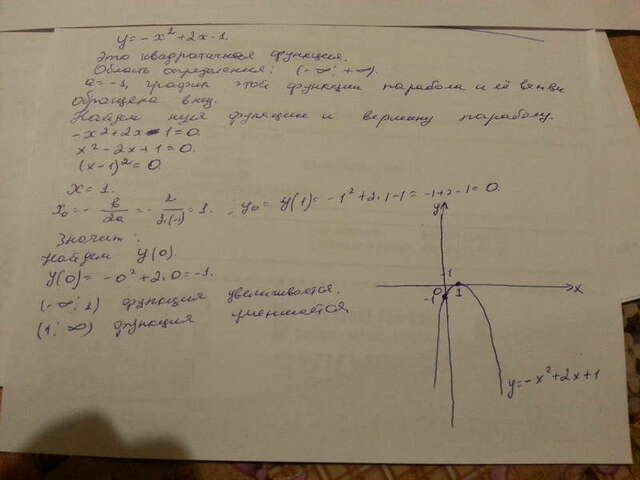 y=-x²+2x-1.
Это квадратичная функция.
Область определения: (-∞; +∞).
a=-1, график этой функции парабола и её ветви
обращена вниз.
Найдем нуля функции и вершину параболу.
-x²+2x-1=0.
x²-2x+1=0.
(x-1)²=0.
x=1.
x₀=-b/2a=-2/2·(-1)=1. ; y₀=y(1)=-1²+2·1-1=-1+2-1=0.
Значит:
найдем y(0).
y(0)=-0²+2·0=-1.
(-∞; 1) функция увеличивается.
(1; ∞) функция уменшается.
y
-1
0
1
x
-1
y=-x²+2x+1